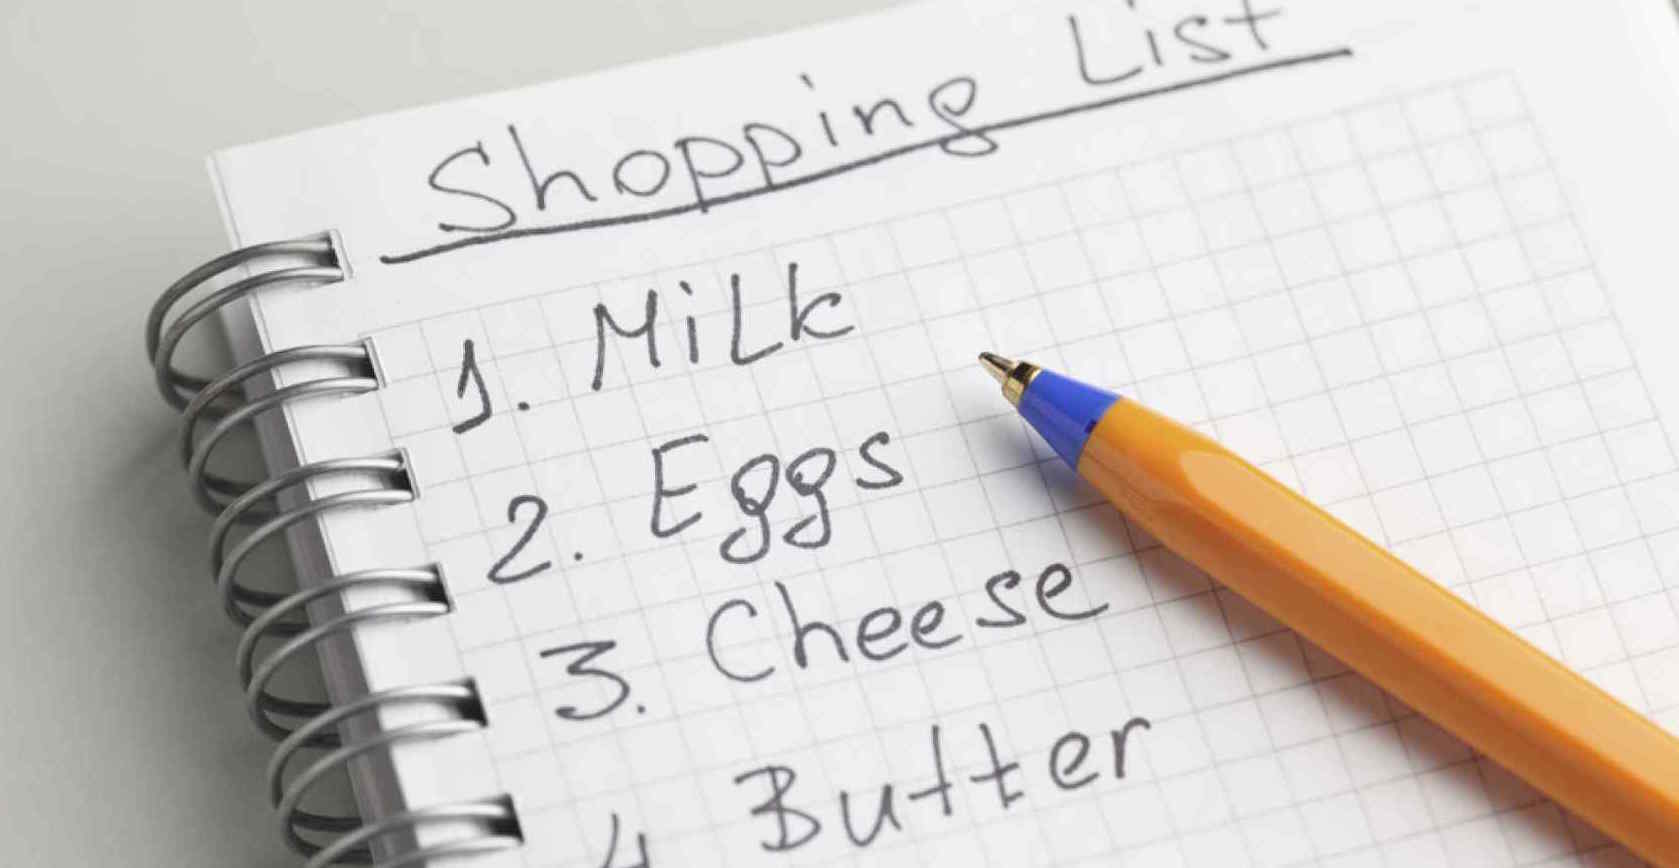 Shopping List
1. Milk
2. Eggs
3. Cheese
4. Butter